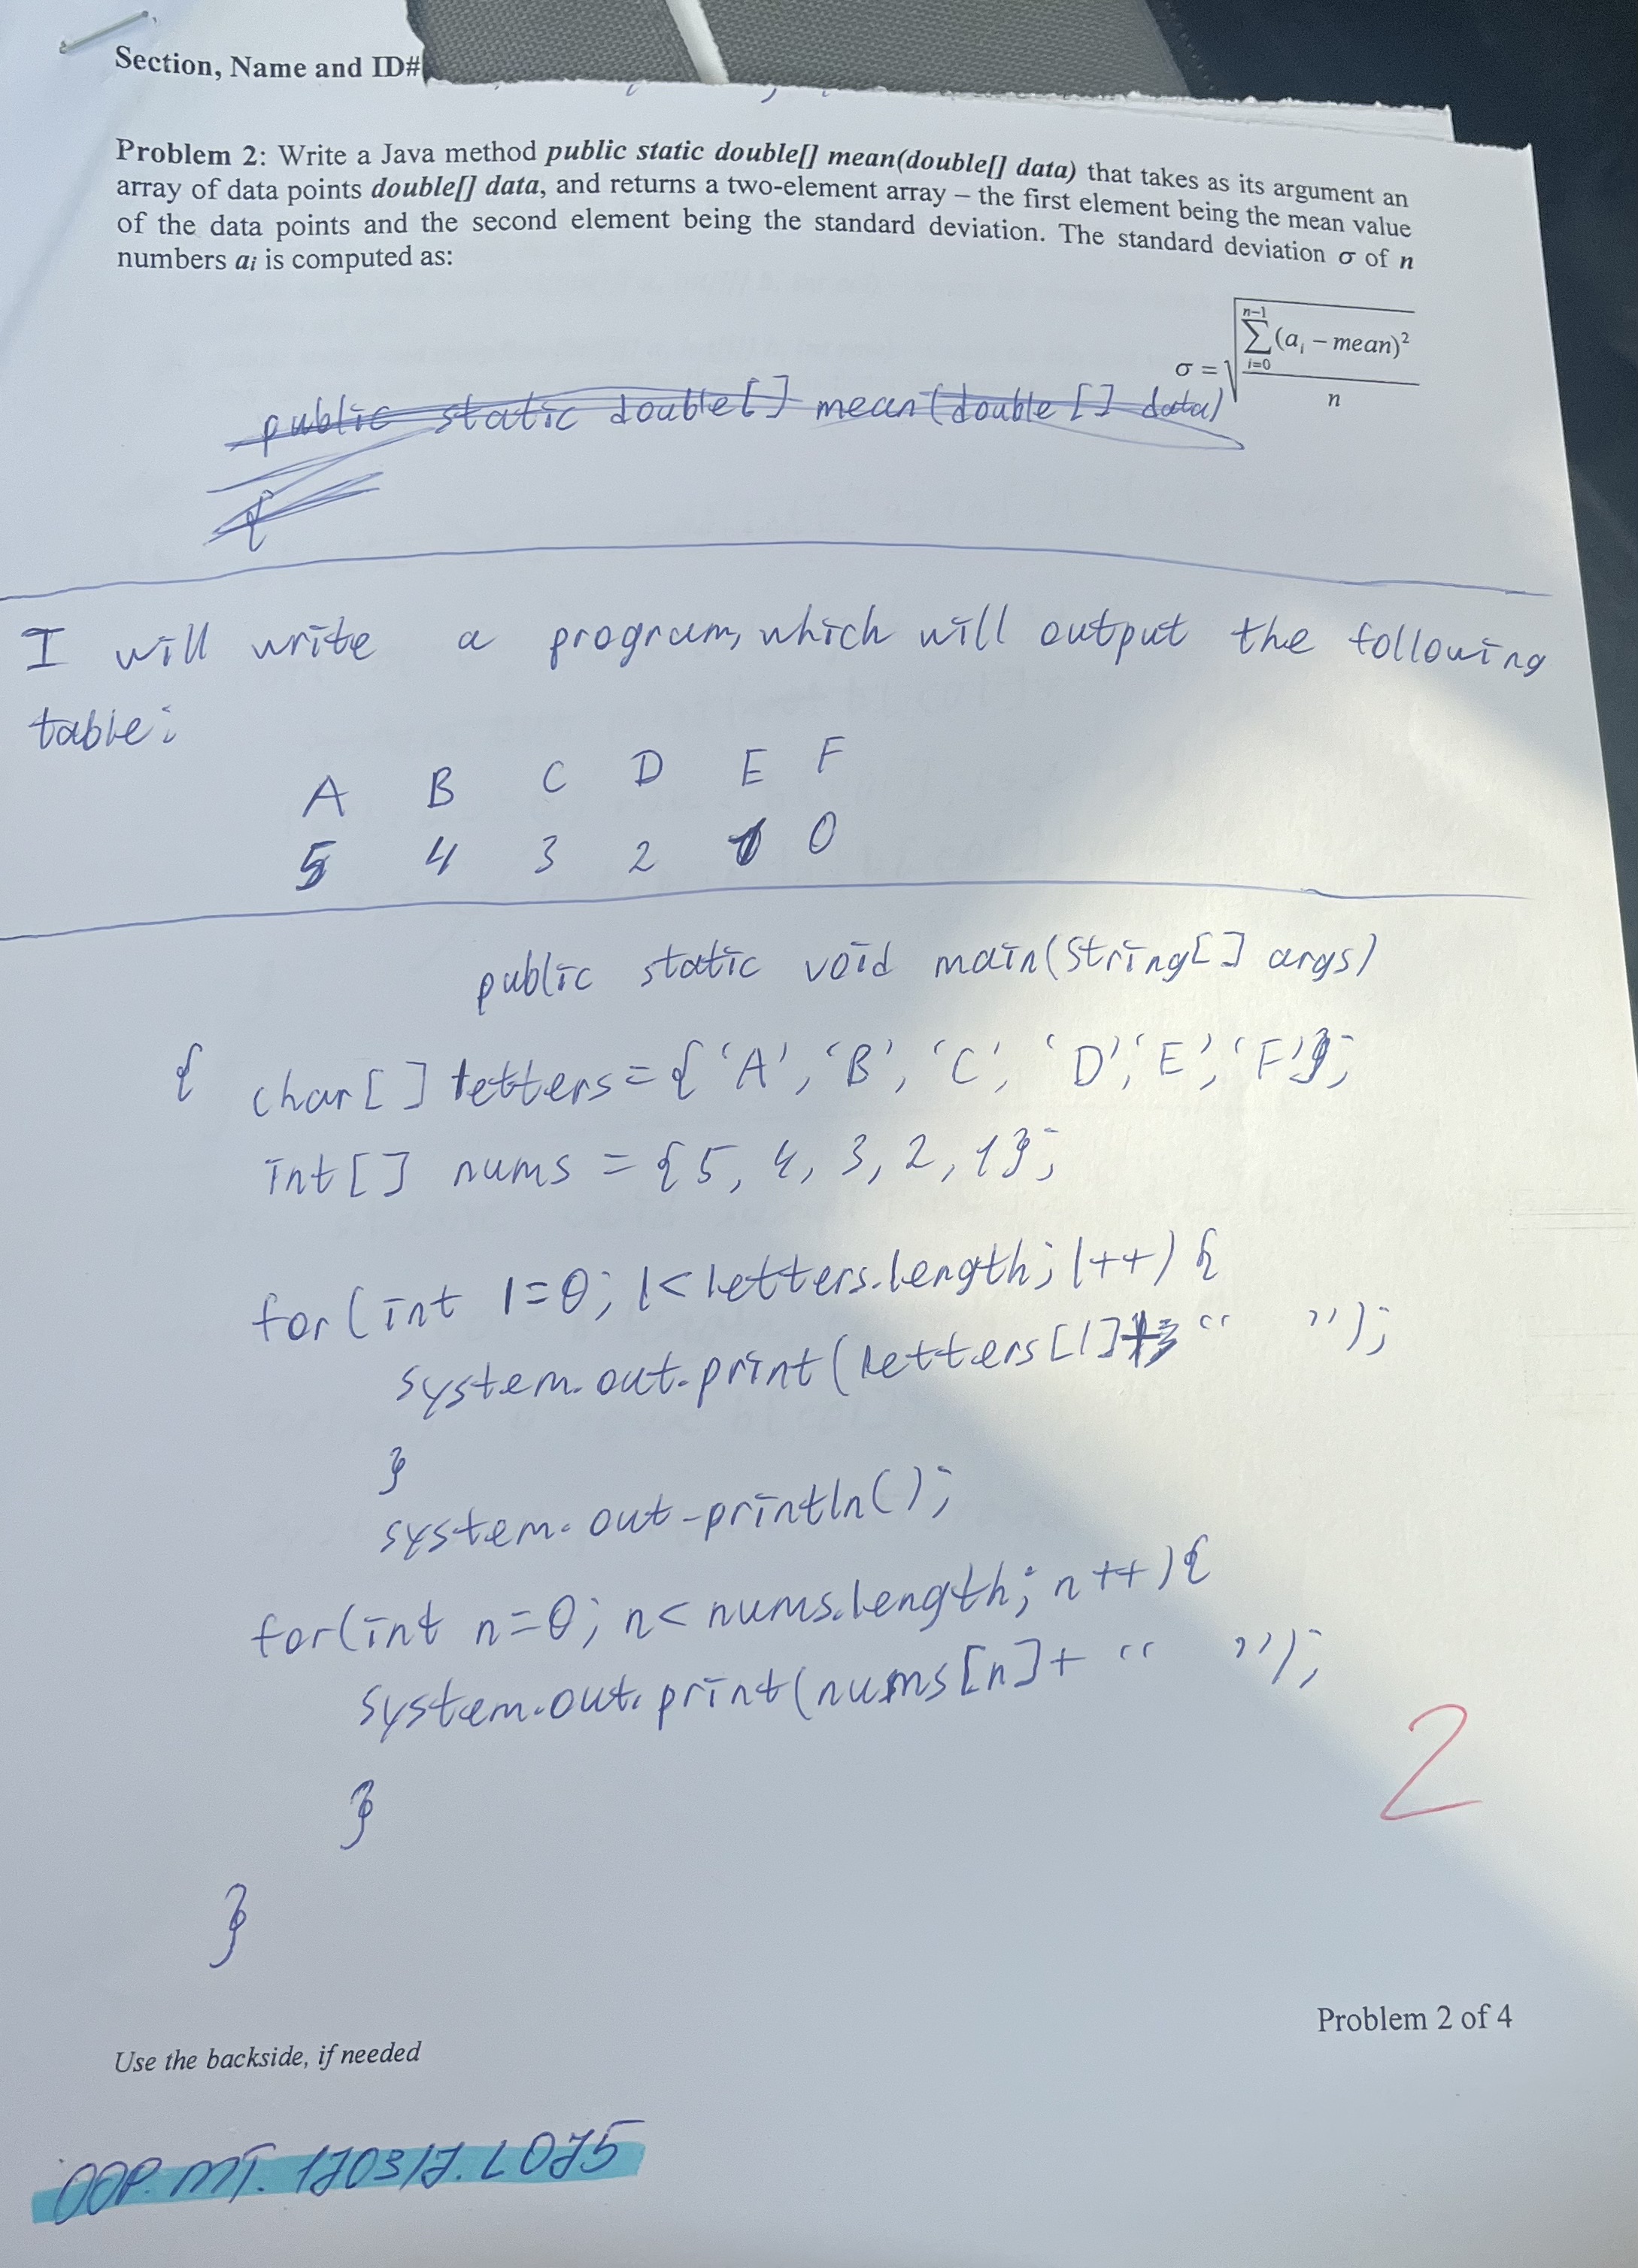 Section, Name and ID#
Problem 2: Write a Java method public static double[] mean(double[] data) that takes as its argument an
array of data points double[] data, and returns a two-element array – the first element being the mean value
of the data points and the second element being the standard deviation. The standard deviation σ of n
numbers ai is computed as:
σ = √(∑(ai – mean)² / n) n-1 i=0
public static double[] mean(double[] data)
{
I will write a program, which will output the following
table:
A B C D E F
5 4 3 2 1 0
public static void main(String[] args)
{ char[] letters={'A', 'B', 'C', 'D', 'E', 'F'};
int[] nums = {5, 4, 3, 2, 1};
for(int l=0; l<letters.length; l++) {
system.out.print(letters[l]+ "  ");
}
system.out.println();
for(int n=0; n< nums.length; n++){
system.out.print(nums[n]+ "  ");
}
}
2
Problem 2 of 4
Use the backside, if needed
OOP.MT.170317.L075